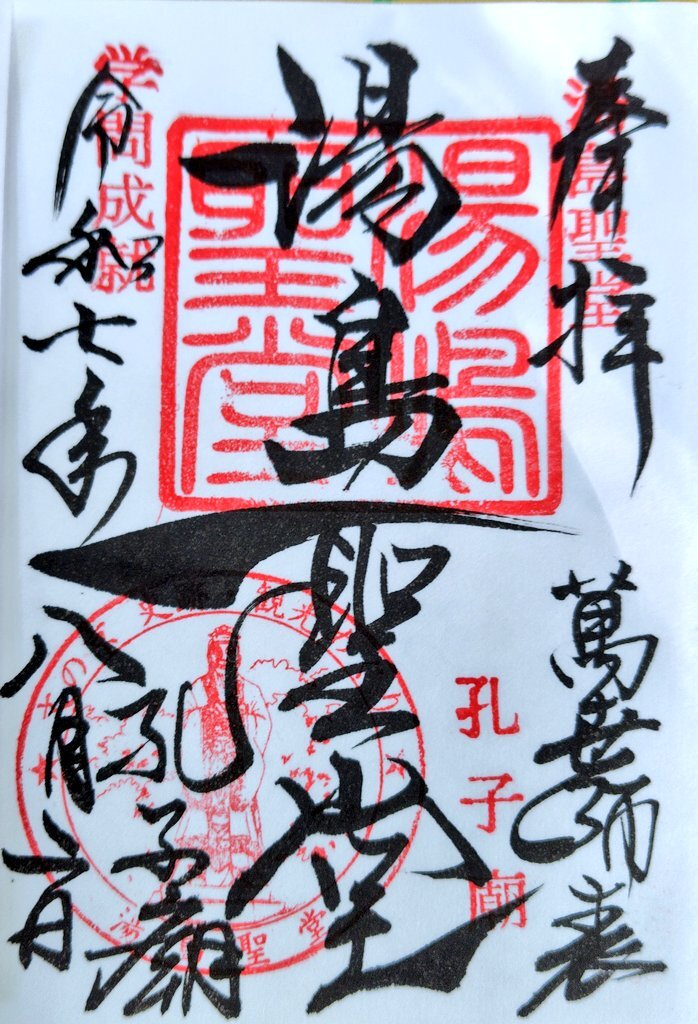 奉拝
湯島聖堂
萬世師表
孔子廟
湯島聖堂
湯島聖堂
孔子廟
学問成就
令和七年八月六日
観光
湯島聖堂